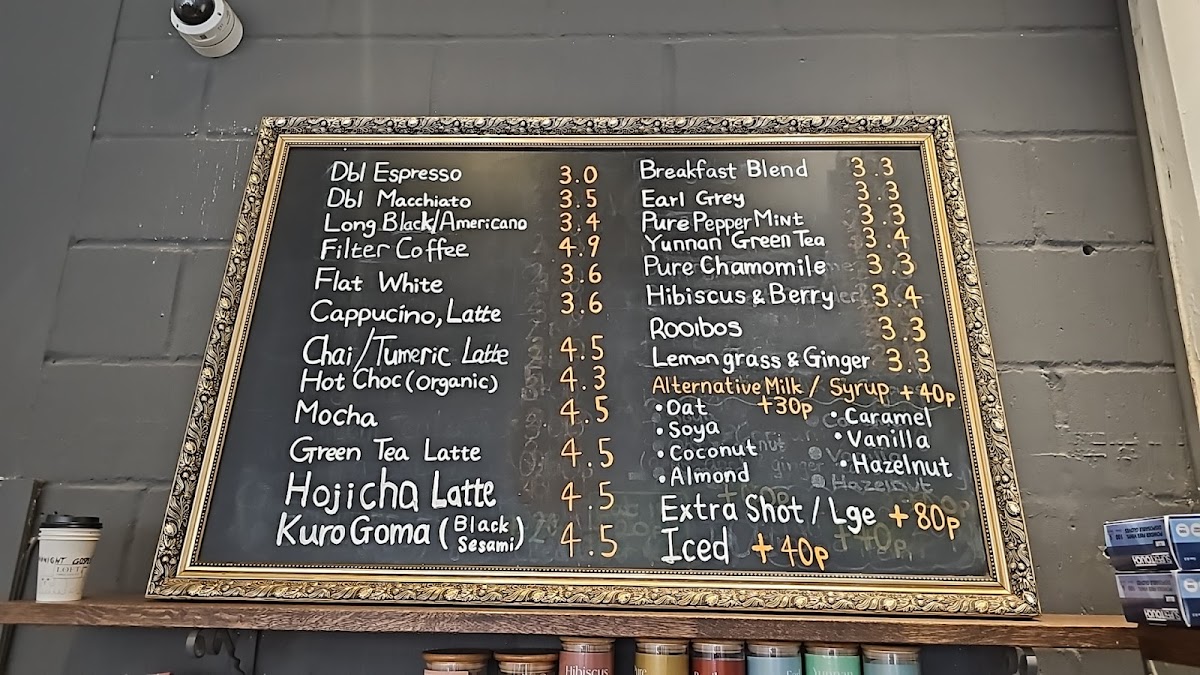 Dbl Espresso 3.0
Dbl Macchiato 3.5
Long Black/Americano 3.4
Filter Coffee 4.9
Flat White 3.6
Cappucino, Latte 3.6
Chai/Tumeric Latte 4.5
Hot Choc (organic) 4.3
Mocha 4.5
Green Tea Latte 4.5
Hojicha Latte 4.5
Kuro Goma (Black Sesami) 4.5
Breakfast Blend 3.3
Earl Grey 3.3
Pure Pepper Mint 3.3
Yunnan Green Tea 3.4
Pure Chamomile 3.3
Hibiscus & Berry 3.4
Rooibos 3.3
Lemongrass & Ginger 3.3
Alternative Milk / Syrup +40p
•Oat +30p •Caramel
•Soya •Vanilla
•Coconut •Hazelnut
•Almond
Extra Shot / Lge +80p
Iced +40p
Hibiscus